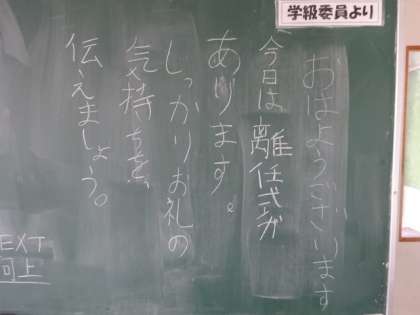 学級委員より
おはようございます
今日は離任式が
あります。
しっかりお礼の
気持ちを、
伝えましょう。
EXT
向上